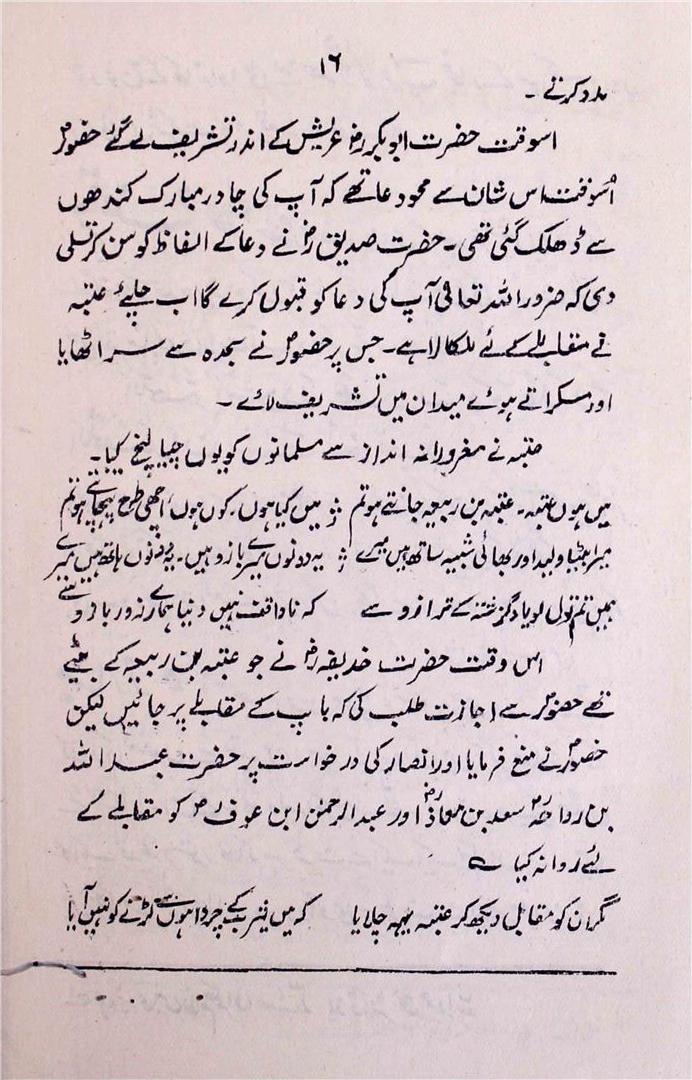 ۱۶
مدد کرتے ۔
اسوقت حضرت ابوبکرؓ عریش کے اندر تشریف لے گئے حضورؐ
اُسوقت اس شان سے محوِ دعا تھے کہ آپ کی چادر مبارک کندھوں
سے ڈھلک گئی تھی ۔ حضرت صدیقؓ نے دعا کے الفاظ کو سن کر تسلی
دی کہ ضرور اللہ تعالٰی آپ کی دعا کو قبول کرے گا اب چلیئے عتبہ
نے مقابلے کے لئے للکارا ہے ۔ جس پر حضورؐ نے سجدہ سے سر اٹھایا
اور مسکراتے ہوئے میدان میں تشریف لائے ۔
عتبہ نے مغرورانہ انداز سے مسلمانوں کو یوں چیالنج کیا ۔
میں ہوں عتبہ ۔ عتبہ بن ربیعہ جانتے ہو تم میں کیا ہوں ، کون ہوں ، اچھی طرح پہچانتے ہو تم
میرا بیٹا ولید اور بھائی شیبہ ساتھ ہیں میرے یہ دونوں میرے بازو ہیں ۔ یہ دونوں ہاتھ ہیں میرے
ہمیں تم تول لو یادِ گزشتہ کے ترازو سے کہ ناواقف نہیں دنیا ہمارے زورِ بازو سے
اس وقت حضرت حذیفہؓ نے جو عتبہ بن ربیعہ کے بیٹے
تھے حضورؐ سے اجازت طلب کی کہ باپ کے مقابلے پر جائیں لیکن
حضورؐ نے منع فرمایا اور انصار کی درخواست پر حضرت عبداللہ
بن رواحہؓ سعد بن معاذؓ اور عبدالرحمٰن ابن عوفؓ کو مقابلے کے
لئے روانہ کیا
مگر ان کو مقابل دیکھ کر عتبہ یہہ چلایا کہ میں یثرب کے چرواہوں سے لڑنے کو نہیں آیا